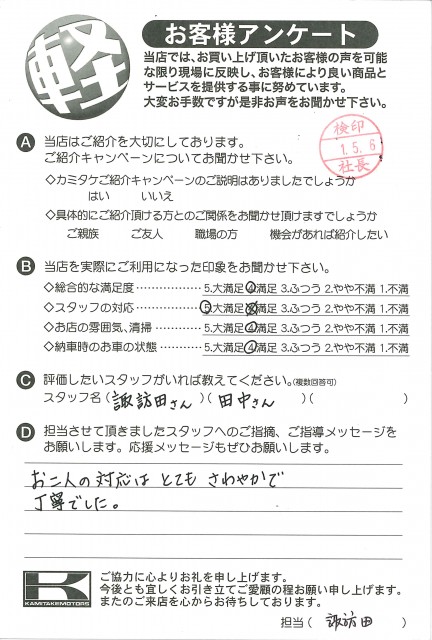 軽
お客様アンケート
当店では、お買い上げ頂いたお客様の声を可能
な限り現場に反映し、お客様により良い商品と
サービスを提供する事に努めています。
大変お手数ですが是非お声をお聞かせ下さい。
検印
1.5.6
社長
A 当店はご紹介を大切にしております。
ご紹介キャンペーンについてお聞かせ下さい。
◇カミタケご紹介キャンペーンのご説明はありましたでしょうか
はい いいえ
◇具体的にご紹介頂ける方とのご関係をお聞かせ頂けますでしょうか
ご親族 ご友人 職場の方 機会があれば紹介したい
B 当店を実際にご利用になった印象をお聞かせ下さい。
◇総合的な満足度 ……………… 5.大満足 4.満足 3.ふつう 2.やや不満 1.不満
◇スタッフの対応 ……………… 5.大満足 4.満足 3.ふつう 2.やや不満 1.不満
◇お店の雰囲気、清掃 ………… 5.大満足 4.満足 3.ふつう 2.やや不満 1.不満
◇納車時のお車の状態 ………… 5.大満足 4.満足 3.ふつう 2.やや不満 1.不満
C 評価したいスタッフがいれば教えてください。(複数回答可)
スタッフ名(諏訪田さん)(田中さん)( )
D 担当させて頂きましたスタッフへのご指摘、ご指導メッセージを
お願いします。応援メッセージもぜひお願いします。
お二人の対応は とても さわやかで
丁寧でした。
K
KAMITAKEMOTORS
ご協力に心よりお礼を申し上げます。
今後とも宜しくお引き立てご愛顧の程お願い申し上げます。
またのご来店を心からお待ちしております。
担当( 諏訪田 )